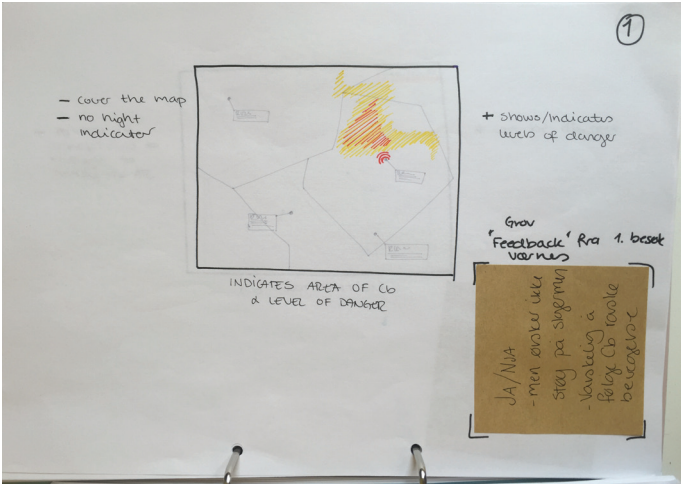 1
- cover the map
- no hight
indicater
+ shows/indicates
levels of danger
INDICATES AREA OF Cb
& LEVEL OF DANGER
Grov
"Feedback" fra 1. besøk
værnes
JA/NJA
- men ønsker ikke
støy på skjermen
- Vanskelig å
følge Cb raske
bevegelse